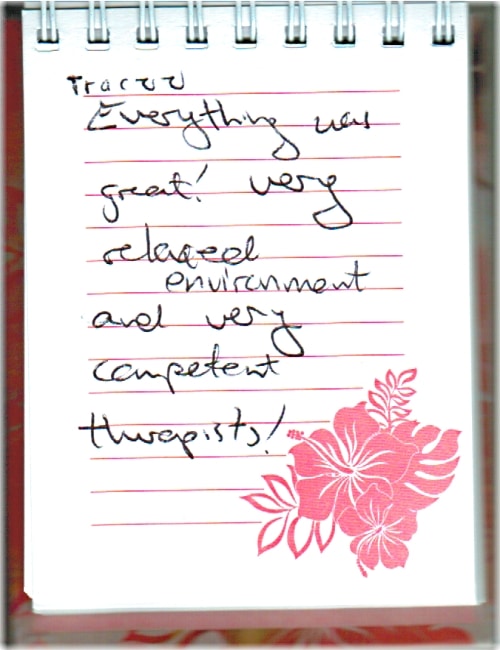 Everything was
great! very
relaxed
environment
and very
competent
therapists!